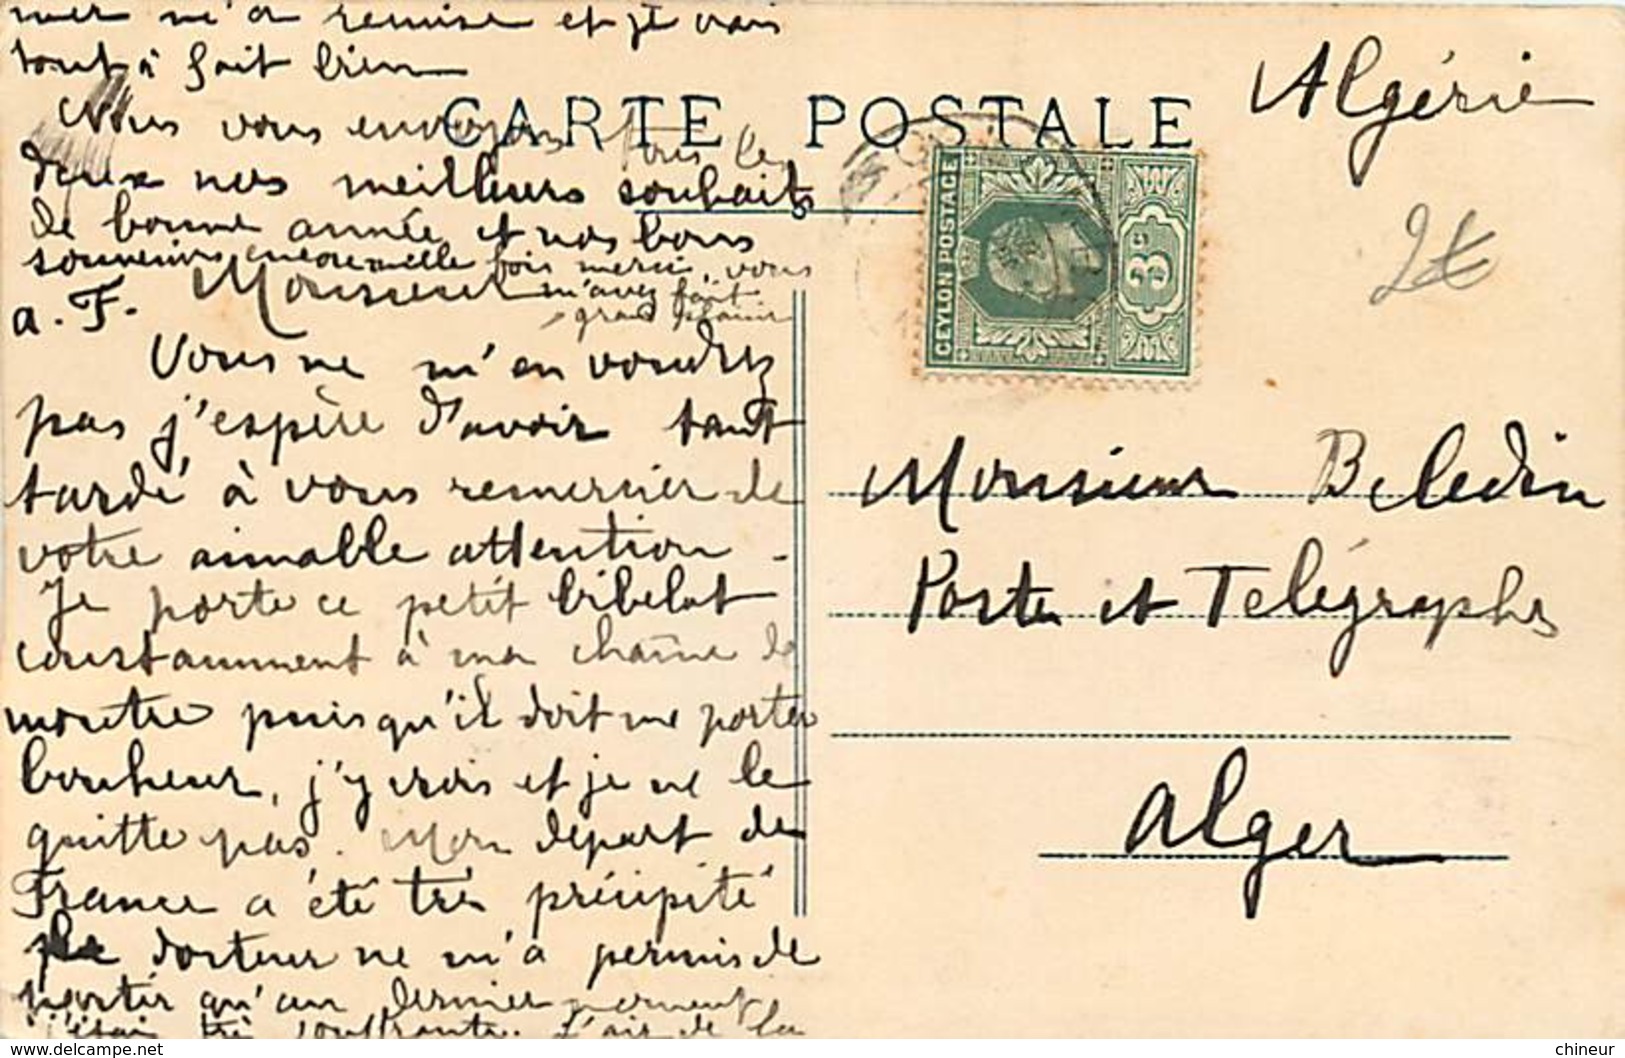 mer m'a remise et je vais
tout à fait bien
Nous vous envoyons tous les
deux nos meilleurs souhaits
de bonne année et nos bons
souvenirs encore mille fois merci, vous
m'avez fait
grand plaisir
a. F.
Monsieur
Vous ne m'en voudrez
pas j'espère d'avoir tant
tardé à vous remercier de
votre aimable attention
Je porte ce petit bibelot
constamment à ma chaîne de
montre puisqu'il doit me porter
bonheur, j'y crois et je ne le
quitte pas. Mon départ de
France a été très précipité
le docteur ne m'a permis de
partir qu'au dernier moment
j'étais très souffrante. L'air de la
CARTE POSTALE
CEYLON POSTAGE
3c
Algérie
2€
Monsieur Beledin
Postes et Télégraphes
Alger
delcampe.net
chineur